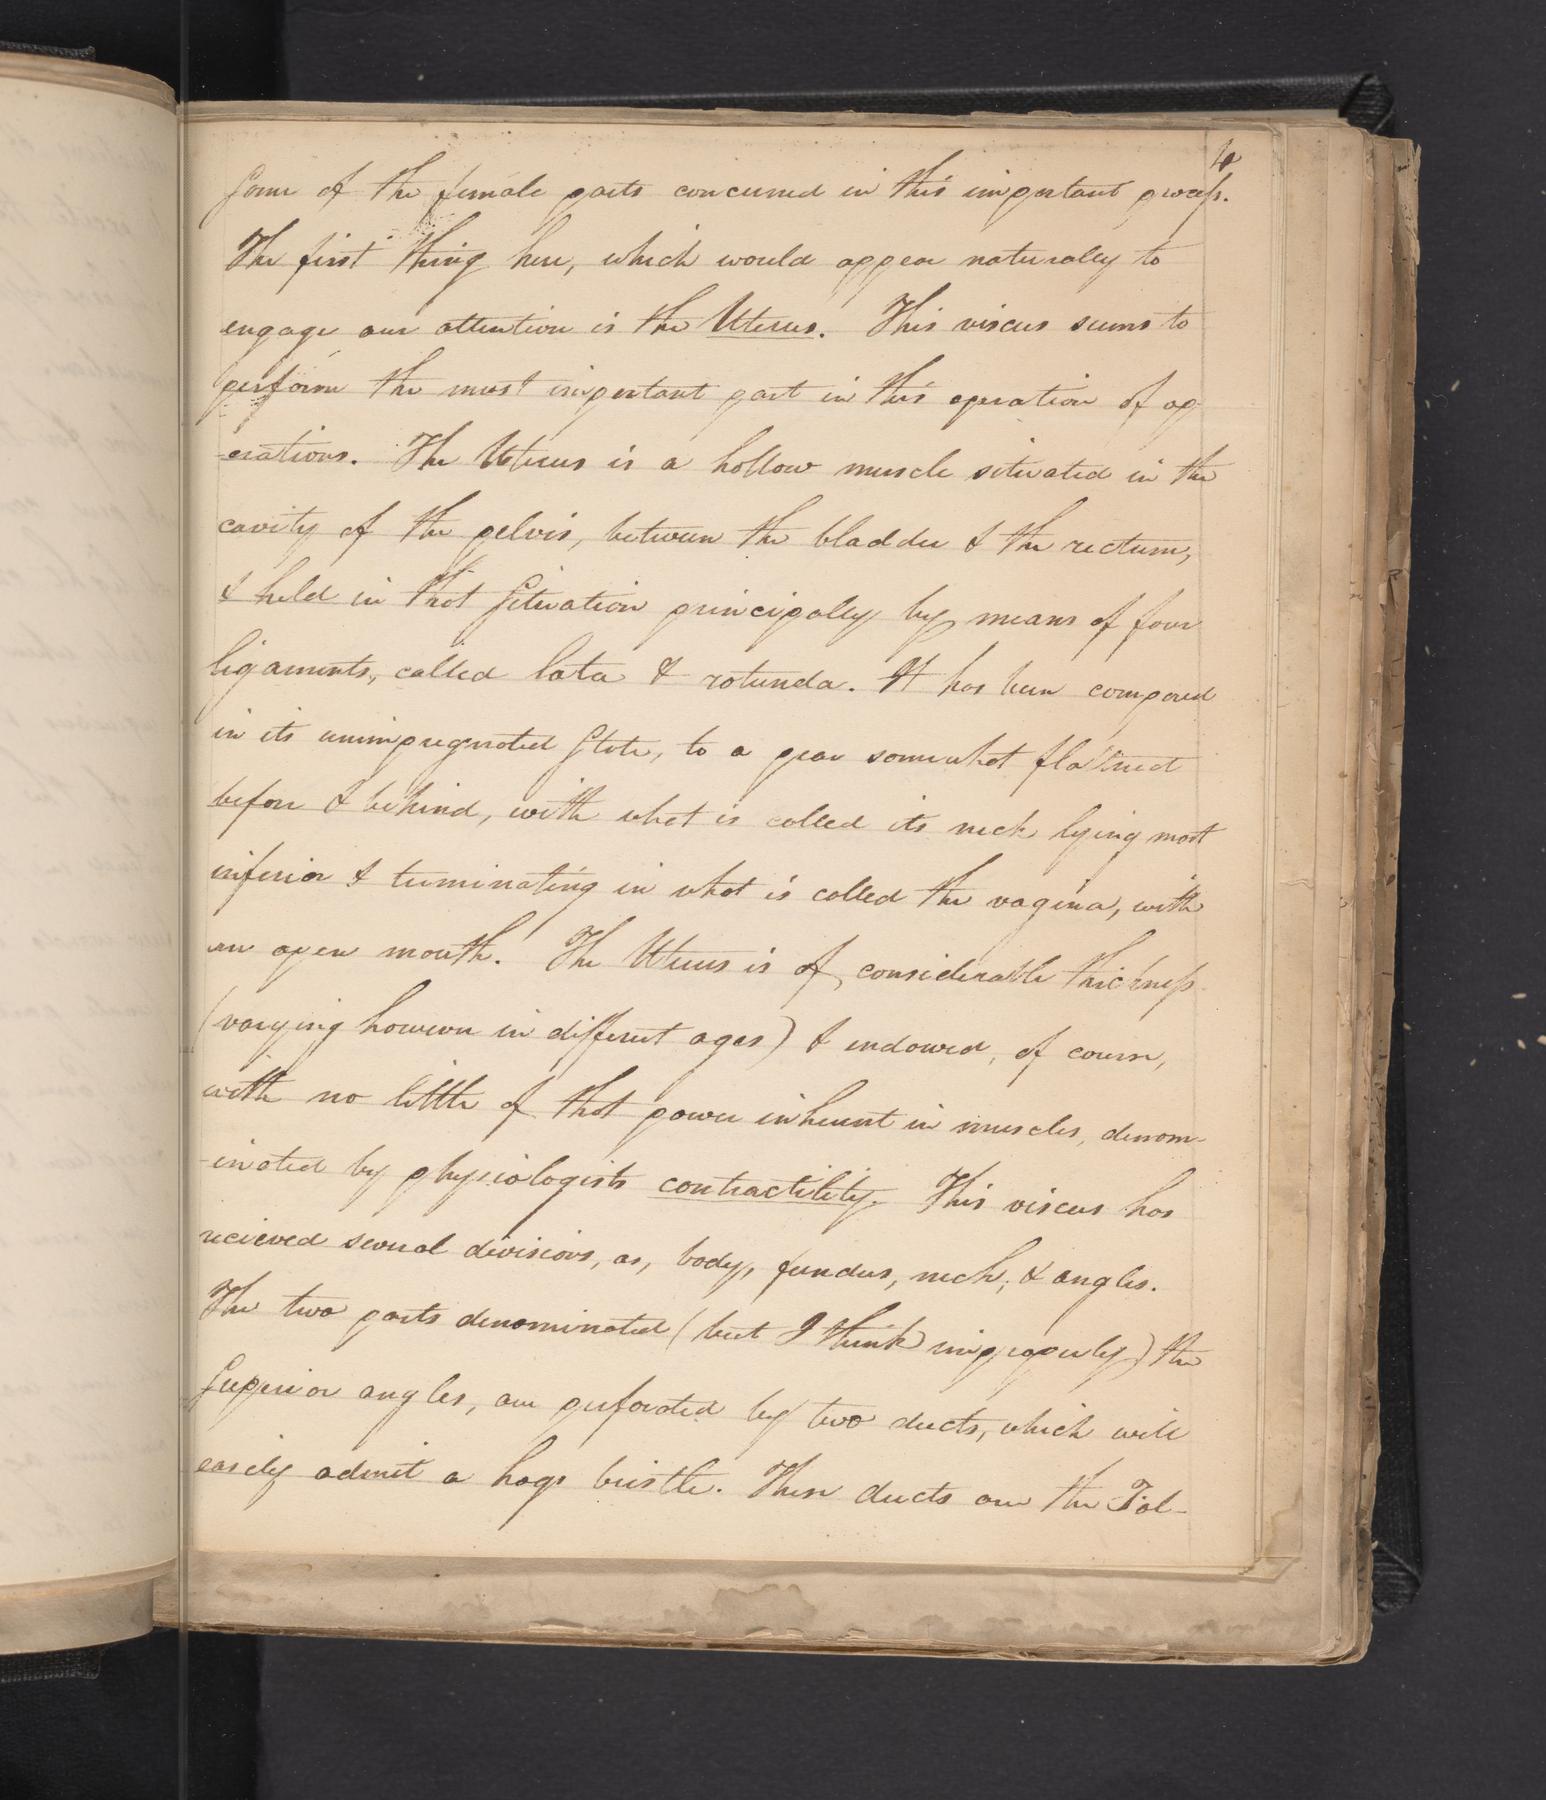 4
some of the female parts concerned in this important process.
The first thing here, which would appear naturally to
engage our attention is the Uterus. This viscus seems to
perform the most important part in this operation of op-
-erations. The Uterus is a hollow muscle situated in the
cavity of the pelvis, between the bladder & the rectum,
& held in that situation principally by means of four
ligaments, called lata & rotunda. It has been compared
in its unimpregnated state, to a pear somewhat flatned
before & behind, with what is called its neck lying most
inferior & terminating in what is called the vagina, with
an open mouth. The Uterus is of considerable thickness
(varying however in different ages) & endowed, of course,
with no little of that power inherent in muscles, denom-
-inated by physiologists contractility. This viscus has
recieved several divisions, as, body, fundus, neck, & angles.
The two parts denominated (but I think improperly) the
superior angles, are perforated by two ducts, which will
easily admit a hogs bristle. These ducts are the Fal-